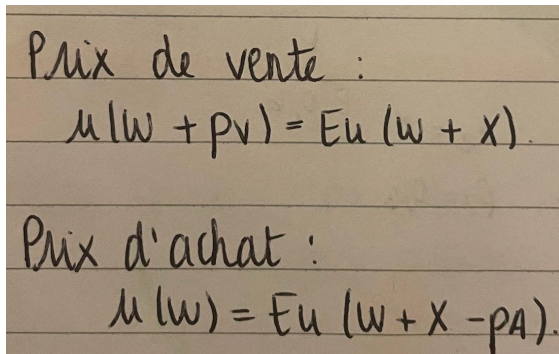 Prix de vente :
u(W + pv) = Eu (W + X).
Prix d'achat :
u(W) = Eu (W + X - pA).